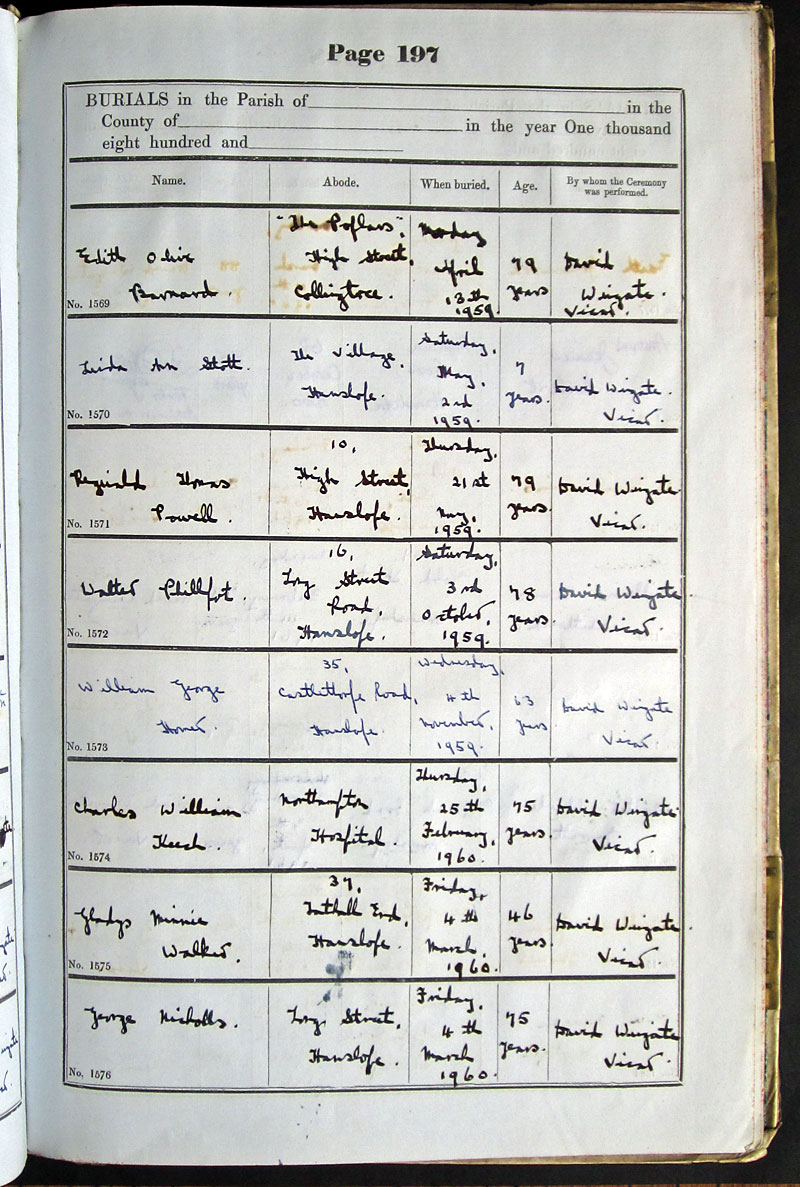 Page 197
BURIALS in the Parish of in the
County of in the year One thousand
eight hundred and
Name. Abode. When buried. Age. By whom the Ceremony was performed.
"The Poplars", Monday
Edith Olive High Street, April 79 David
Barnard. Collingtree. 13th years Wingate.
No. 1569 1959 Vicar.
Saturday,
Linda Ann Stott. The Village, May, 7
Hanslope. 2nd years. David Wingate.
No. 1570 1959. Vicar.
10, Thursday,
Reginald Thomas High Street, 21st 79 David Wingate
Powell. Hanslope. May, years. Vicar.
No. 1571 1959.
16, Saturday,
Walter Phillpot. Long Street 3rd 78 David Wingate
Road, October, years. Vicar.
No. 1572 Hanslope. 1959.
35, Wednesday,
William George Castlethorpe Road, 4th 63 David Wingate
Horner. Hanslope. November, years Vicar.
No. 1573 1959.
Thursday,
Charles William Northampton 25th 75 David Wingate
Keech. Hospital. February, years. Vicar.
No. 1574 1960.
37, Friday,
Gladys Minnie Tathall End, 4th 46 David Wingate
Walker. Hanslope. March, years. Vicar.
No. 1575 1960.
Friday,
George Nicholls. Long Street, 4th 75 David Wingate
Hanslope. March years. Vicar.
No. 1576 1960.